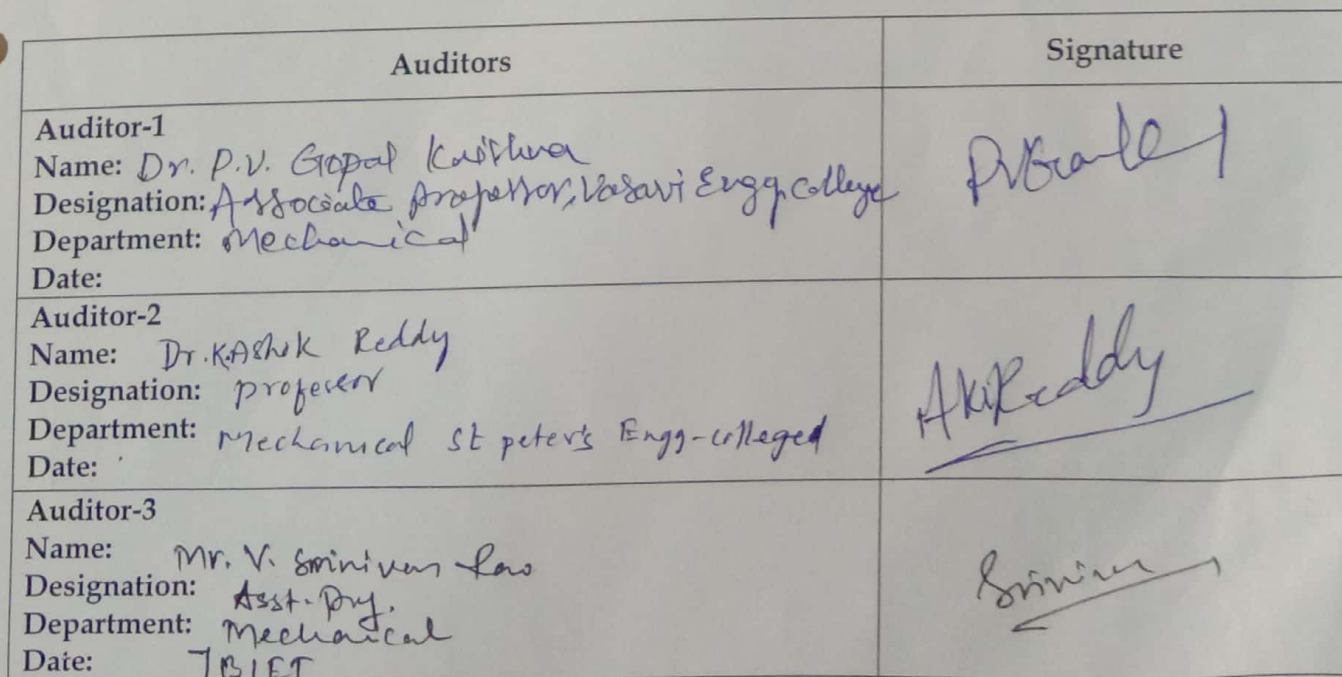 Auditors Signature
Auditor-1
Name: Dr. P.V. Gopal Krishna
Designation: Associate professor, Vasavi Engg. College
Department: Mechanical
Date:
Auditor-2
Name: Dr. K. Ashok Reddy
Designation: professor
Department: Mechanical St peter's Engg-colleged
Date:
AKReddy
Auditor-3
Name: Mr. V. Srinivas Rao
Designation: Asst. Prof.
Department: Mechanical
Date: JBIET
Srinivas